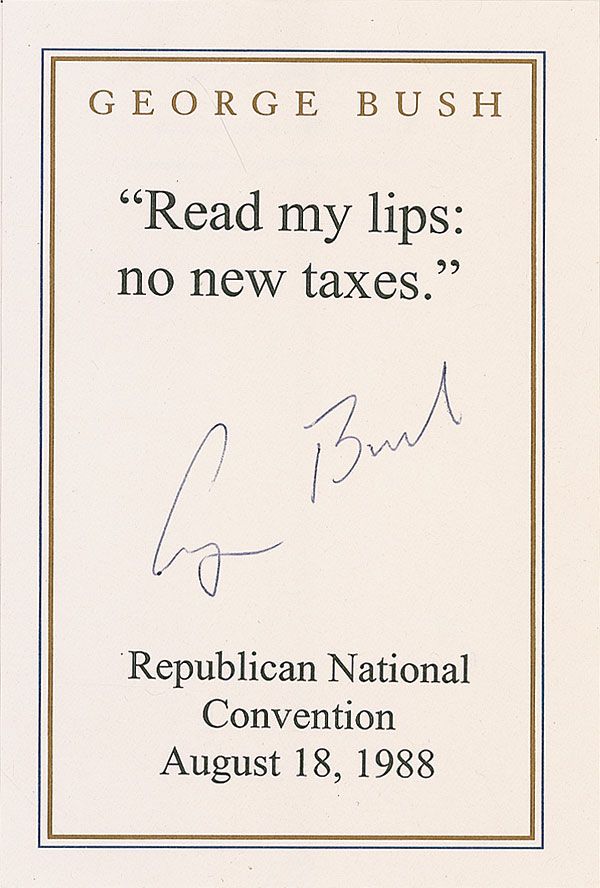 GEORGE BUSH
“Read my lips:
no new taxes.”
George Bush
Republican National
Convention
August 18, 1988